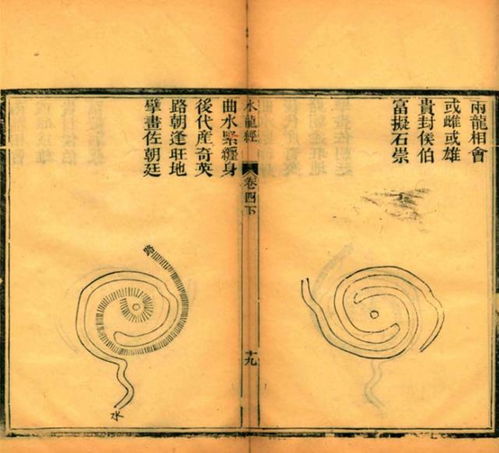 兩龍相會
或雌或雄
貴封侯伯
富擬石崇
水龍經
卷四下
十九
曲水緊纏身
後代産奇英
路朝逢旺地
擘畫佐朝廷
路
水